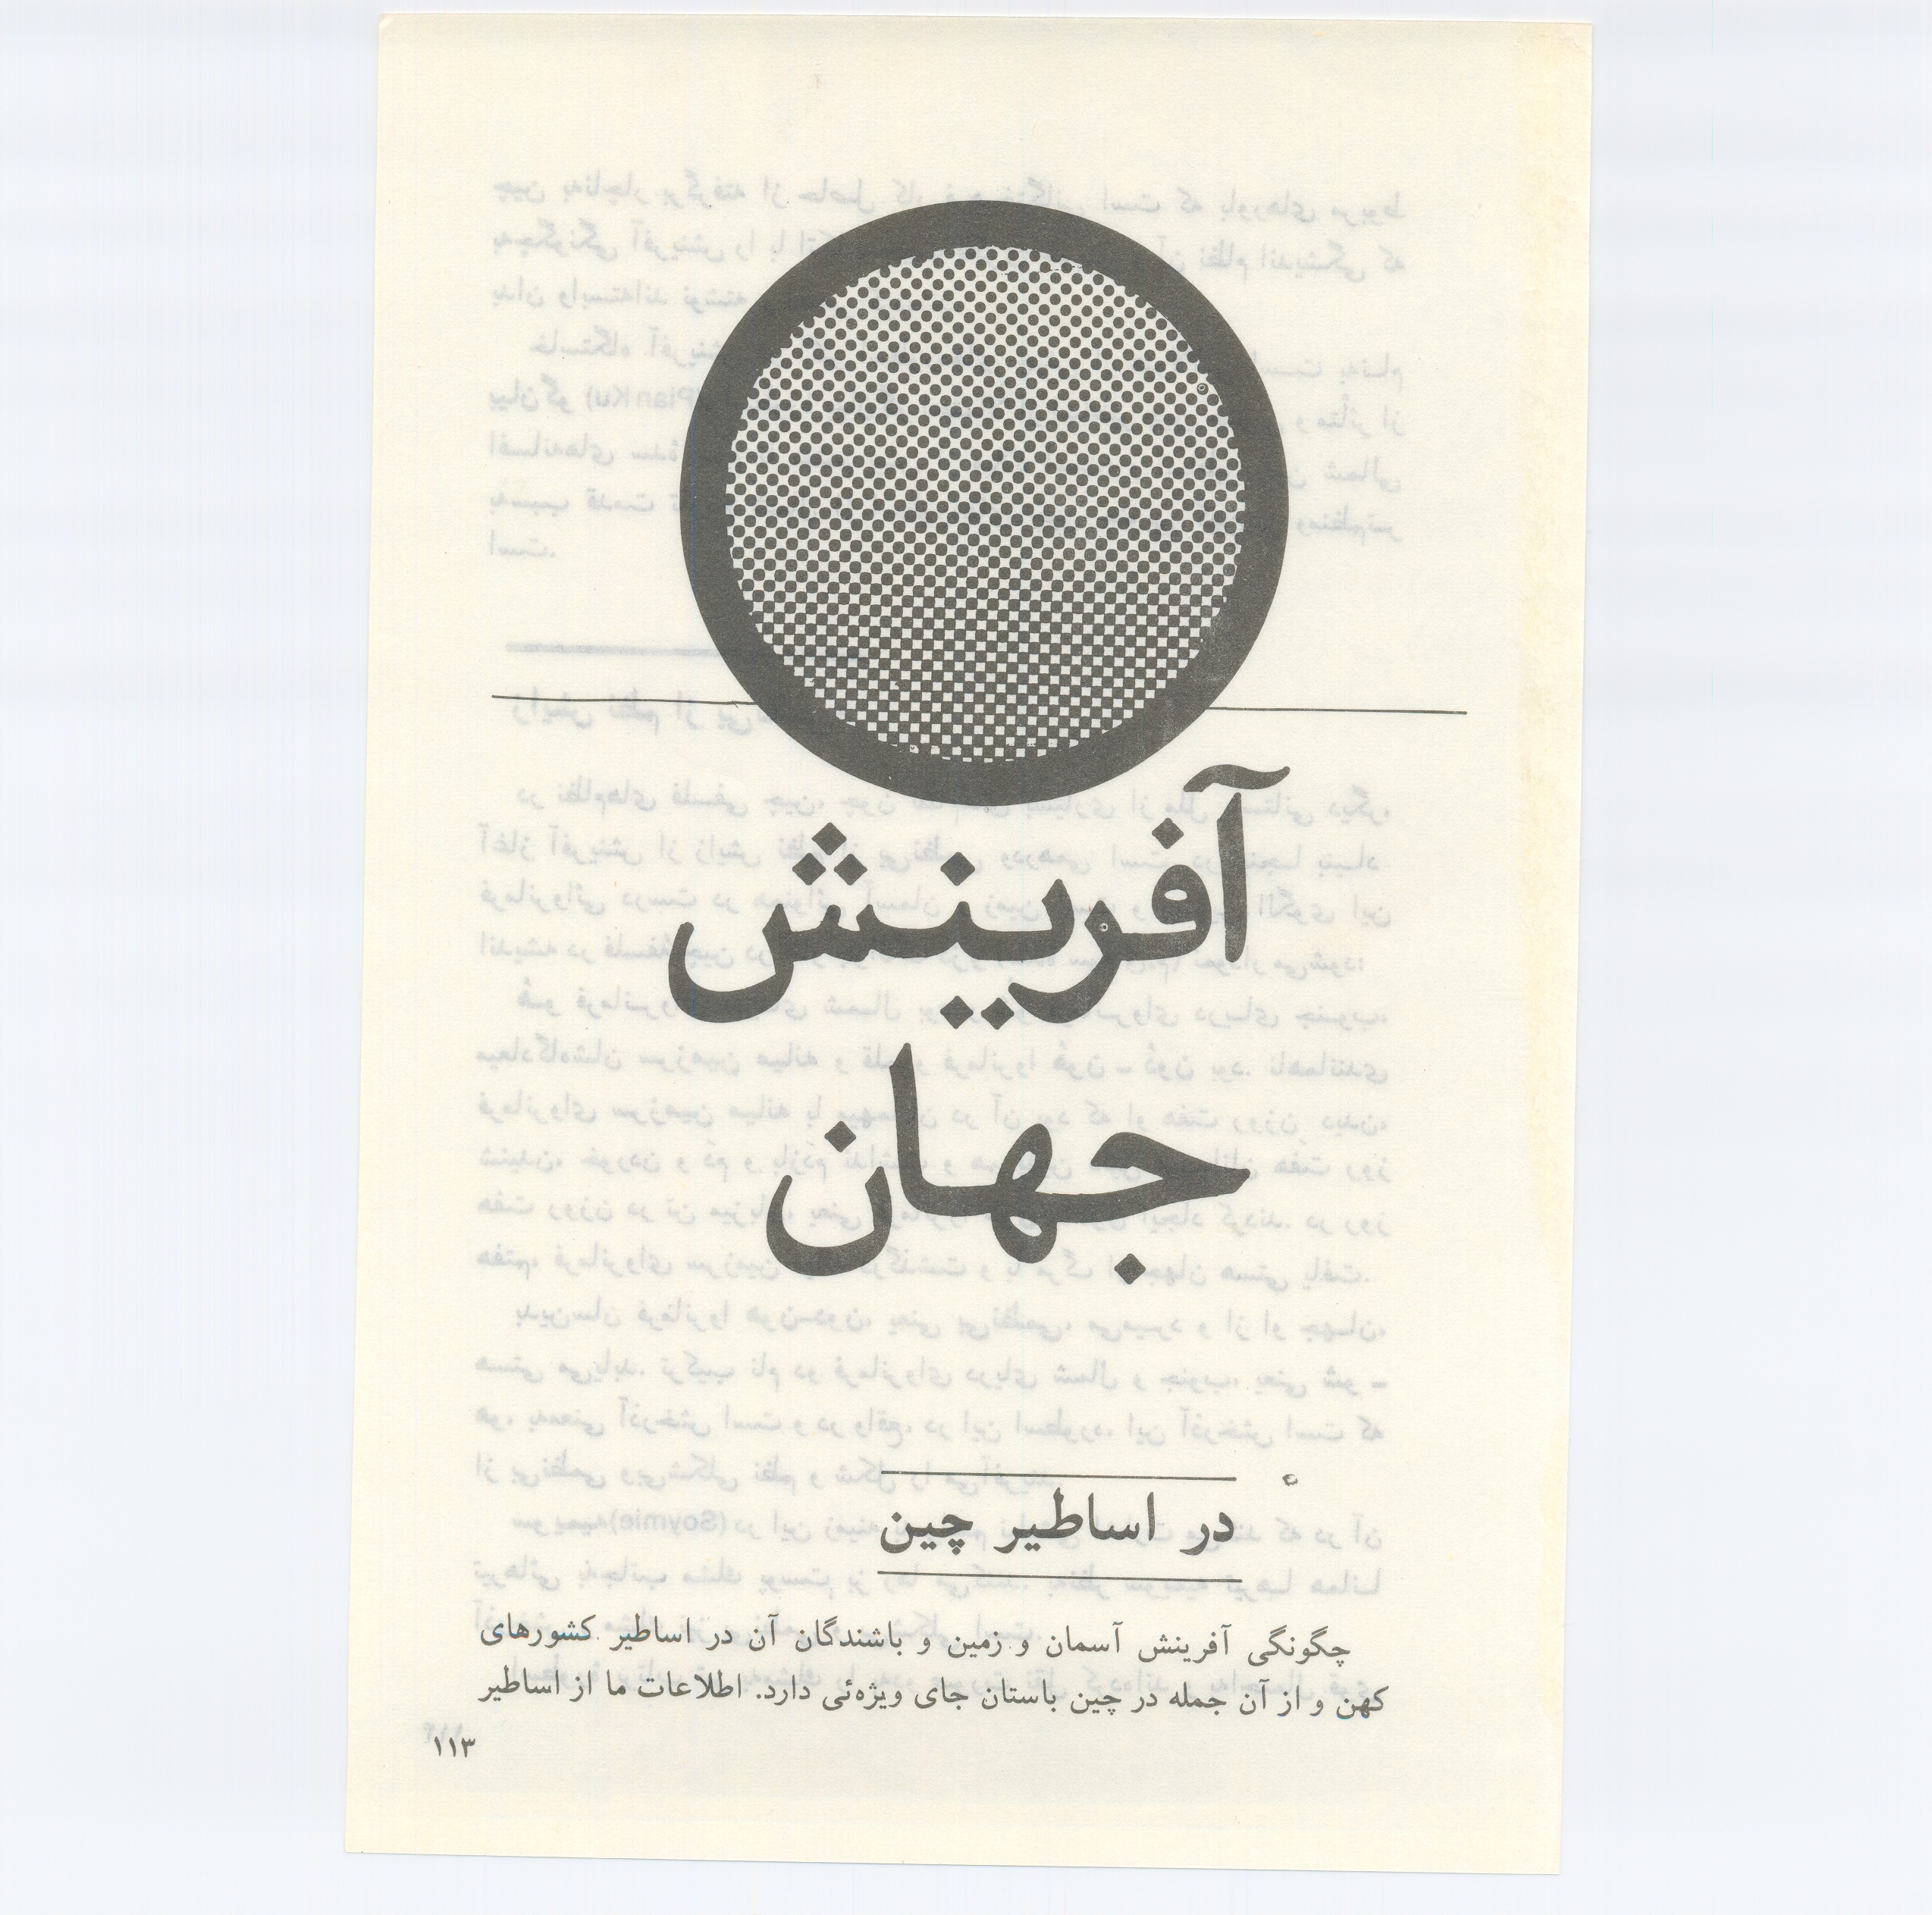 آفرینش
جهان
در اساطیر چین
چگونگی آفرینش آسمان و زمین و باشندگان آن در اساطیر کشورهای
کهن و از آن جمله در چین باستان جای ویژه‌ئی دارد. اطلاعات ما از اساطیر
۱۱۳